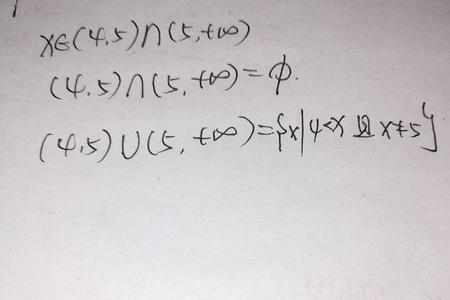 x∈(4,5)∩(5,+∞)
(4,5)∩(5,+∞)=ϕ.
(4,5)∪(5,+∞)={x|4<x 且 x≠5}